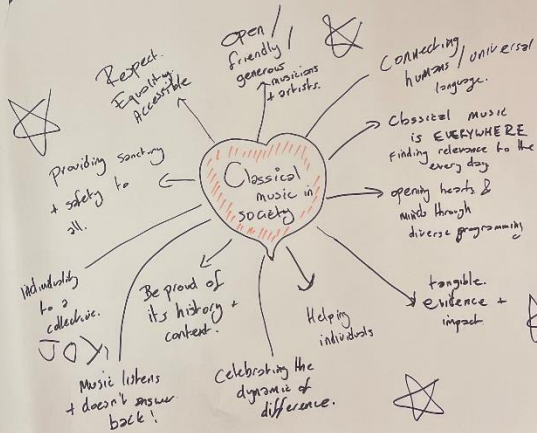 Classical
music in
society
Open/
friendly/
generous
musicians
+ artists.
Connecting
humans / universal
language.
Classical music
is EVERYWHERE
Finding relevance to the
every day
opening hearts &
minds through
diverse programming
tangible.
evidence +
impact
Helping
individuals
Celebrating the
dynamic of
difference.
Be proud of
its history +
context.
Music listens
+ doesn't answer
back!
Individuality
to a
collective.
JOY!
Providing
+ safety to
all.
Respect.
Equality.
Accessible